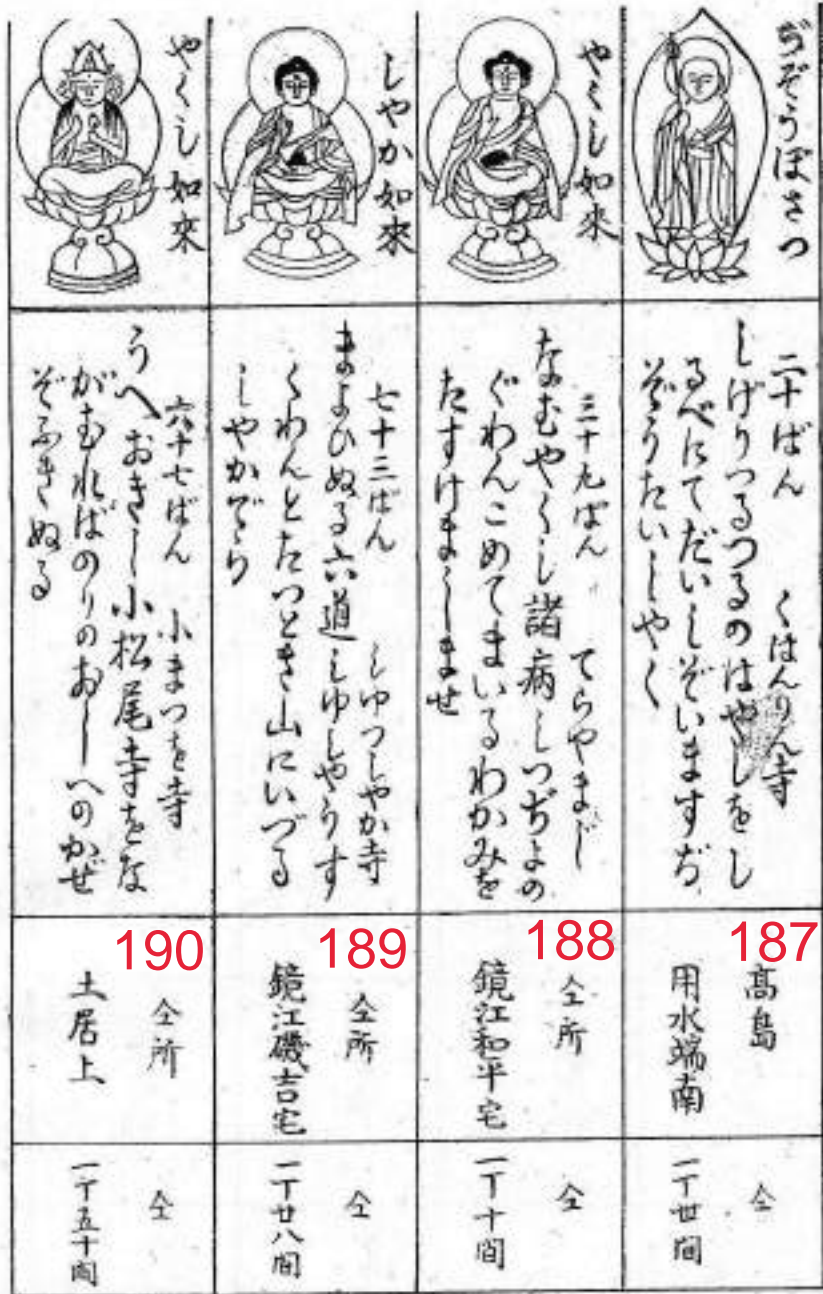 ぢぞうぼさつ
二十ばん くはんりん寺
しげりつるつるのはやしをし
るべにてだいしぞいますぢ
ぞうたいしやく
187
髙島
用水端南
仝
一丁廿間
やくし如來
三十九ばん てらやまじ
なむやくし諸病しつぢよの
ぐわんこめてまいるわがみを
たすけましませ
188
仝所
鏡江和平宅
仝
一丁十間
しやか如來
七十三ばん しゆつしやか寺
まよひぬる六道しゆしやうす
くわんとたつとき山にいづる
しやかぞう
189
仝所
鏡江磯吉宅
仝
一丁廿八間
やくし如來
六十七ばん 小まつを寺
うへおきし小松尾寺をな
がむればのりのおしへのかぜ
ぞふきぬる
190
仝所
土居上
仝
一丁五十間